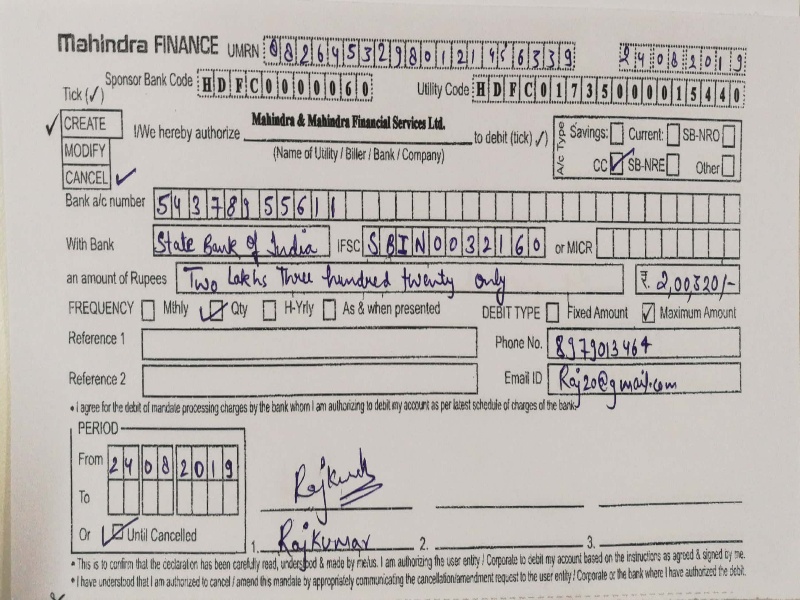 Mahindra FINANCE UMRN 08264532980121456339 24082019
Tick (✓) Sponsor Bank Code HDFC0000060 Utility Code HDFC01735000015440
✓ CREATE I/We hereby authorize Mahindra & Mahindra Financial Services Ltd. to debit (tick) ✓) A/c Type Savings: Current: SB-NRO
MODIFY (Name of Utility / Biller / Bank / Company) CC ✓ SB-NRE Other
CANCEL ✓
Bank a/c number 54378955611
With Bank State Bank Of India IFSC SBIN0032160 or MICR
an amount of Rupees Two Lakhs Three hundred twenty only ₹. 2,00,320/-
FREQUENCY Mthly ✓ Qty H-Yrly As & when presented DEBIT TYPE Fixed Amount ✓ Maximum Amount
Reference 1 Phone No. 8979013464
Reference 2 Email ID Raj20@gmail.com
• I agree for the debit of mandate processing charges by the bank whom I am authorizing to debit my account as per latest schedule of charges of the bank.
PERIOD
From 24082019
To
Or ✓ Until Cancelled
1. RajKumar 2. 3.
• This is to confirm that the declaration has been carefully read, understood & made by me/us. I am authorizing the user entity / Corporate to debit my account based on the instructions as agreed & signed by me.
• I have understood that I am authorized to cancel / amend this mandate by appropriately communicating the cancellation/amendment request to the user entity / Corporate or the bank where I have authorized the debit.